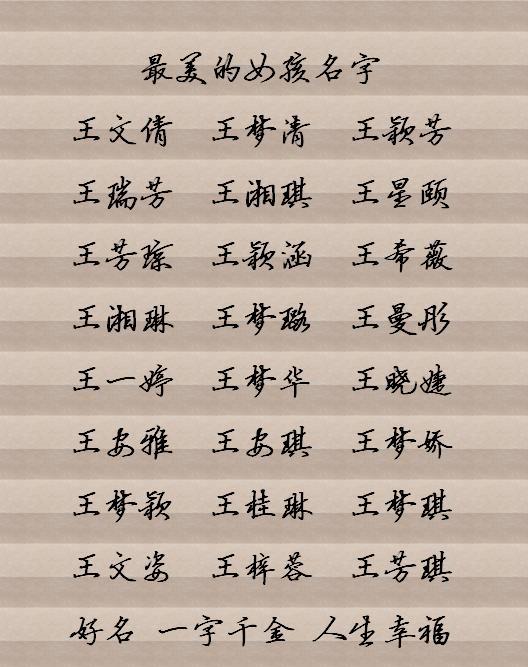 最美的女孩名字
王文倩 王梦清 王颖芳
王瑞芳 王湘琪 王星颐
王芳琼 王颖涵 王希薇
王湘琳 王梦璐 王曼彤
王一婷 王梦华 王晓婕
王安雅 王安琪 王梦娇
王梦颖 王桂琳 王梦琪
王文姿 王梓蓉 王芳琪
好名 一字千金 人生幸福